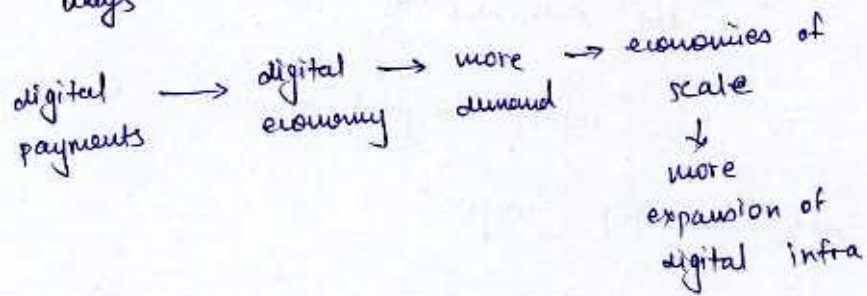 ways
digital payments → digital economy → more demand → economies of scale
↓
more
expansion of
digital infra